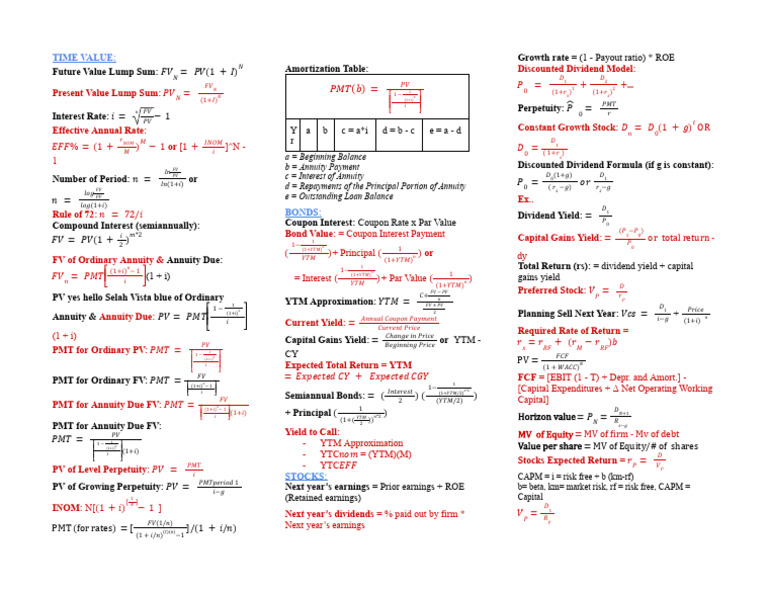 TIME VALUE:
Future Value Lump Sum: FV_N = PV(1 + I)^N
Present Value Lump Sum: PV_N = FV_n / (1+I)^n
Interest Rate: i = ⁿ√(PV/PV) − 1
Effective Annual Rate:
EFF% = (1 + r_NOM/M)^M − 1 or [1 + INOM/i]^N -
1
Number of Period: n = ln(FV/PV) / ln(1+i) or
n = log(FV/PV) / log(1+i)
Rule of 72: n = 72/i
Compound Interest (semiannually):
FV = PV(1 + i/2)^m*2
FV of Ordinary Annuity & Annuity Due:
FV_n = PMT[((1+i)^n − 1)/i](1 + i)
PV yes hello Selah Vista blue of Ordinary
Annuity & Annuity Due: PV = PMT[(1 − 1/(1+i)^n)/i]
(1 + i)
PMT for Ordinary PV: PMT = PV / [(1 − 1/(1+i)^n)/i]
PMT for Ordinary FV: PMT = FV / [((1+i)^n − 1)/i]
PMT for Annuity Due FV: PMT = FV / [((1+i)^n − 1)/i](1+i)
PMT for Annuity Due FV:
PMT = PV / [(1 − 1/(1+i)^n)/i](1+i)
PV of Level Perpetuity: PV = PMT / i
PV of Growing Perpetuity: PV = PMTperiod 1 / i−g
INOM: N[(1 + i) − 1 ]
PMT (for rates) = [FV(1/n) / (1 + i/n) −1]/(1 + i/n)
Amortization Table:
PMT(b) = PV / [(1 − 1/(1+i)^n)/i]
Y r | a | b | c = a*i | d = b - c | e = a - d
a = Beginning Balance
b = Annuity Payment
c = Interest of Annuity
d = Repayments of the Principal Portion of Annuity
e = Outstanding Loan Balance
BONDS:
Coupon Interest: Coupon Rate x Par Value
Bond Value: = Coupon Interest Payment
((1 − 1/(1+YTM)^n) / YTM)+ Principal (1/(1+YTM)^n) or
= Interest ((1 − 1/(1+YTM)^n) / YTM)+ Par Value (1/(1+YTM)^n)
YTM Approximation: YTM = (C + (FV − PV)/n) / ((FV + PV)/2)
Current Yield: = Annual Coupon Payment / Current Price
Capital Gains Yield: = Change in Price / Beginning Price or YTM -
CY
Expected Total Return = YTM
= Expected CY + Expected CGY
Semiannual Bonds: = (Interest/2) ((1 − 1/(1+YTM/2)) / (YTM/2))
+ Principal (1/(1+(YTM/2))^n*2)
Yield to Call:
- YTM Approximation
- YTCnom = (YTM)(M)
- YTCEFF
STOCKS:
Next year's earnings = Prior earnings + ROE
(Retained earnings)
Next year's dividends = % paid out by firm *
Next year's earnings
Growth rate = (1 - Payout ratio) * ROE
Discounted Dividend Model:
P_0 = D_1/(1+r_s)^1 + D_2/(1+r_s)^2 +...
Perpetuity: P̂_0 = PMT / r
Constant Growth Stock: D_n = D_0(1 + g)^t OR
D_0 = D_1 / (1+r_s)
Discounted Dividend Formula (if g is constant):
P_0 = D_0(1+g) / (r_s −g) or D_1 / r_s−g
Ex..
Dividend Yield: = D_1 / P_0
Capital Gains Yield: = (P_1−P_0) / P_0 or total return -
dy
Total Return (rs): = dividend yield + capital
gains yield
Preferred Stock: V_P = D / r_P
Planning Sell Next Year: Vcs = D_1 / i−g + Price / (1+i)^n
Required Rate of Return =
r_s = r_RF + (r_M − r_RF)b
PV = FCF / (1 + WACC)^n
FCF = [EBIT (1 - T) + Depr. and Amort.] -
[Capital Expenditures + Δ Net Operating Working
Capital]
Horizon value = P_N = D_n+1 / R_i−g
MV of Equity = MV of firm - Mv of debt
Value per share = MV of Equity/# of shares
Stocks Expected Return = r_P = D / V_P
CAPM = i = risk free + b (km-rf)
b= beta, km= market risk, rf = risk free, CAPM =
Capital
V_P = D_1 / R_P